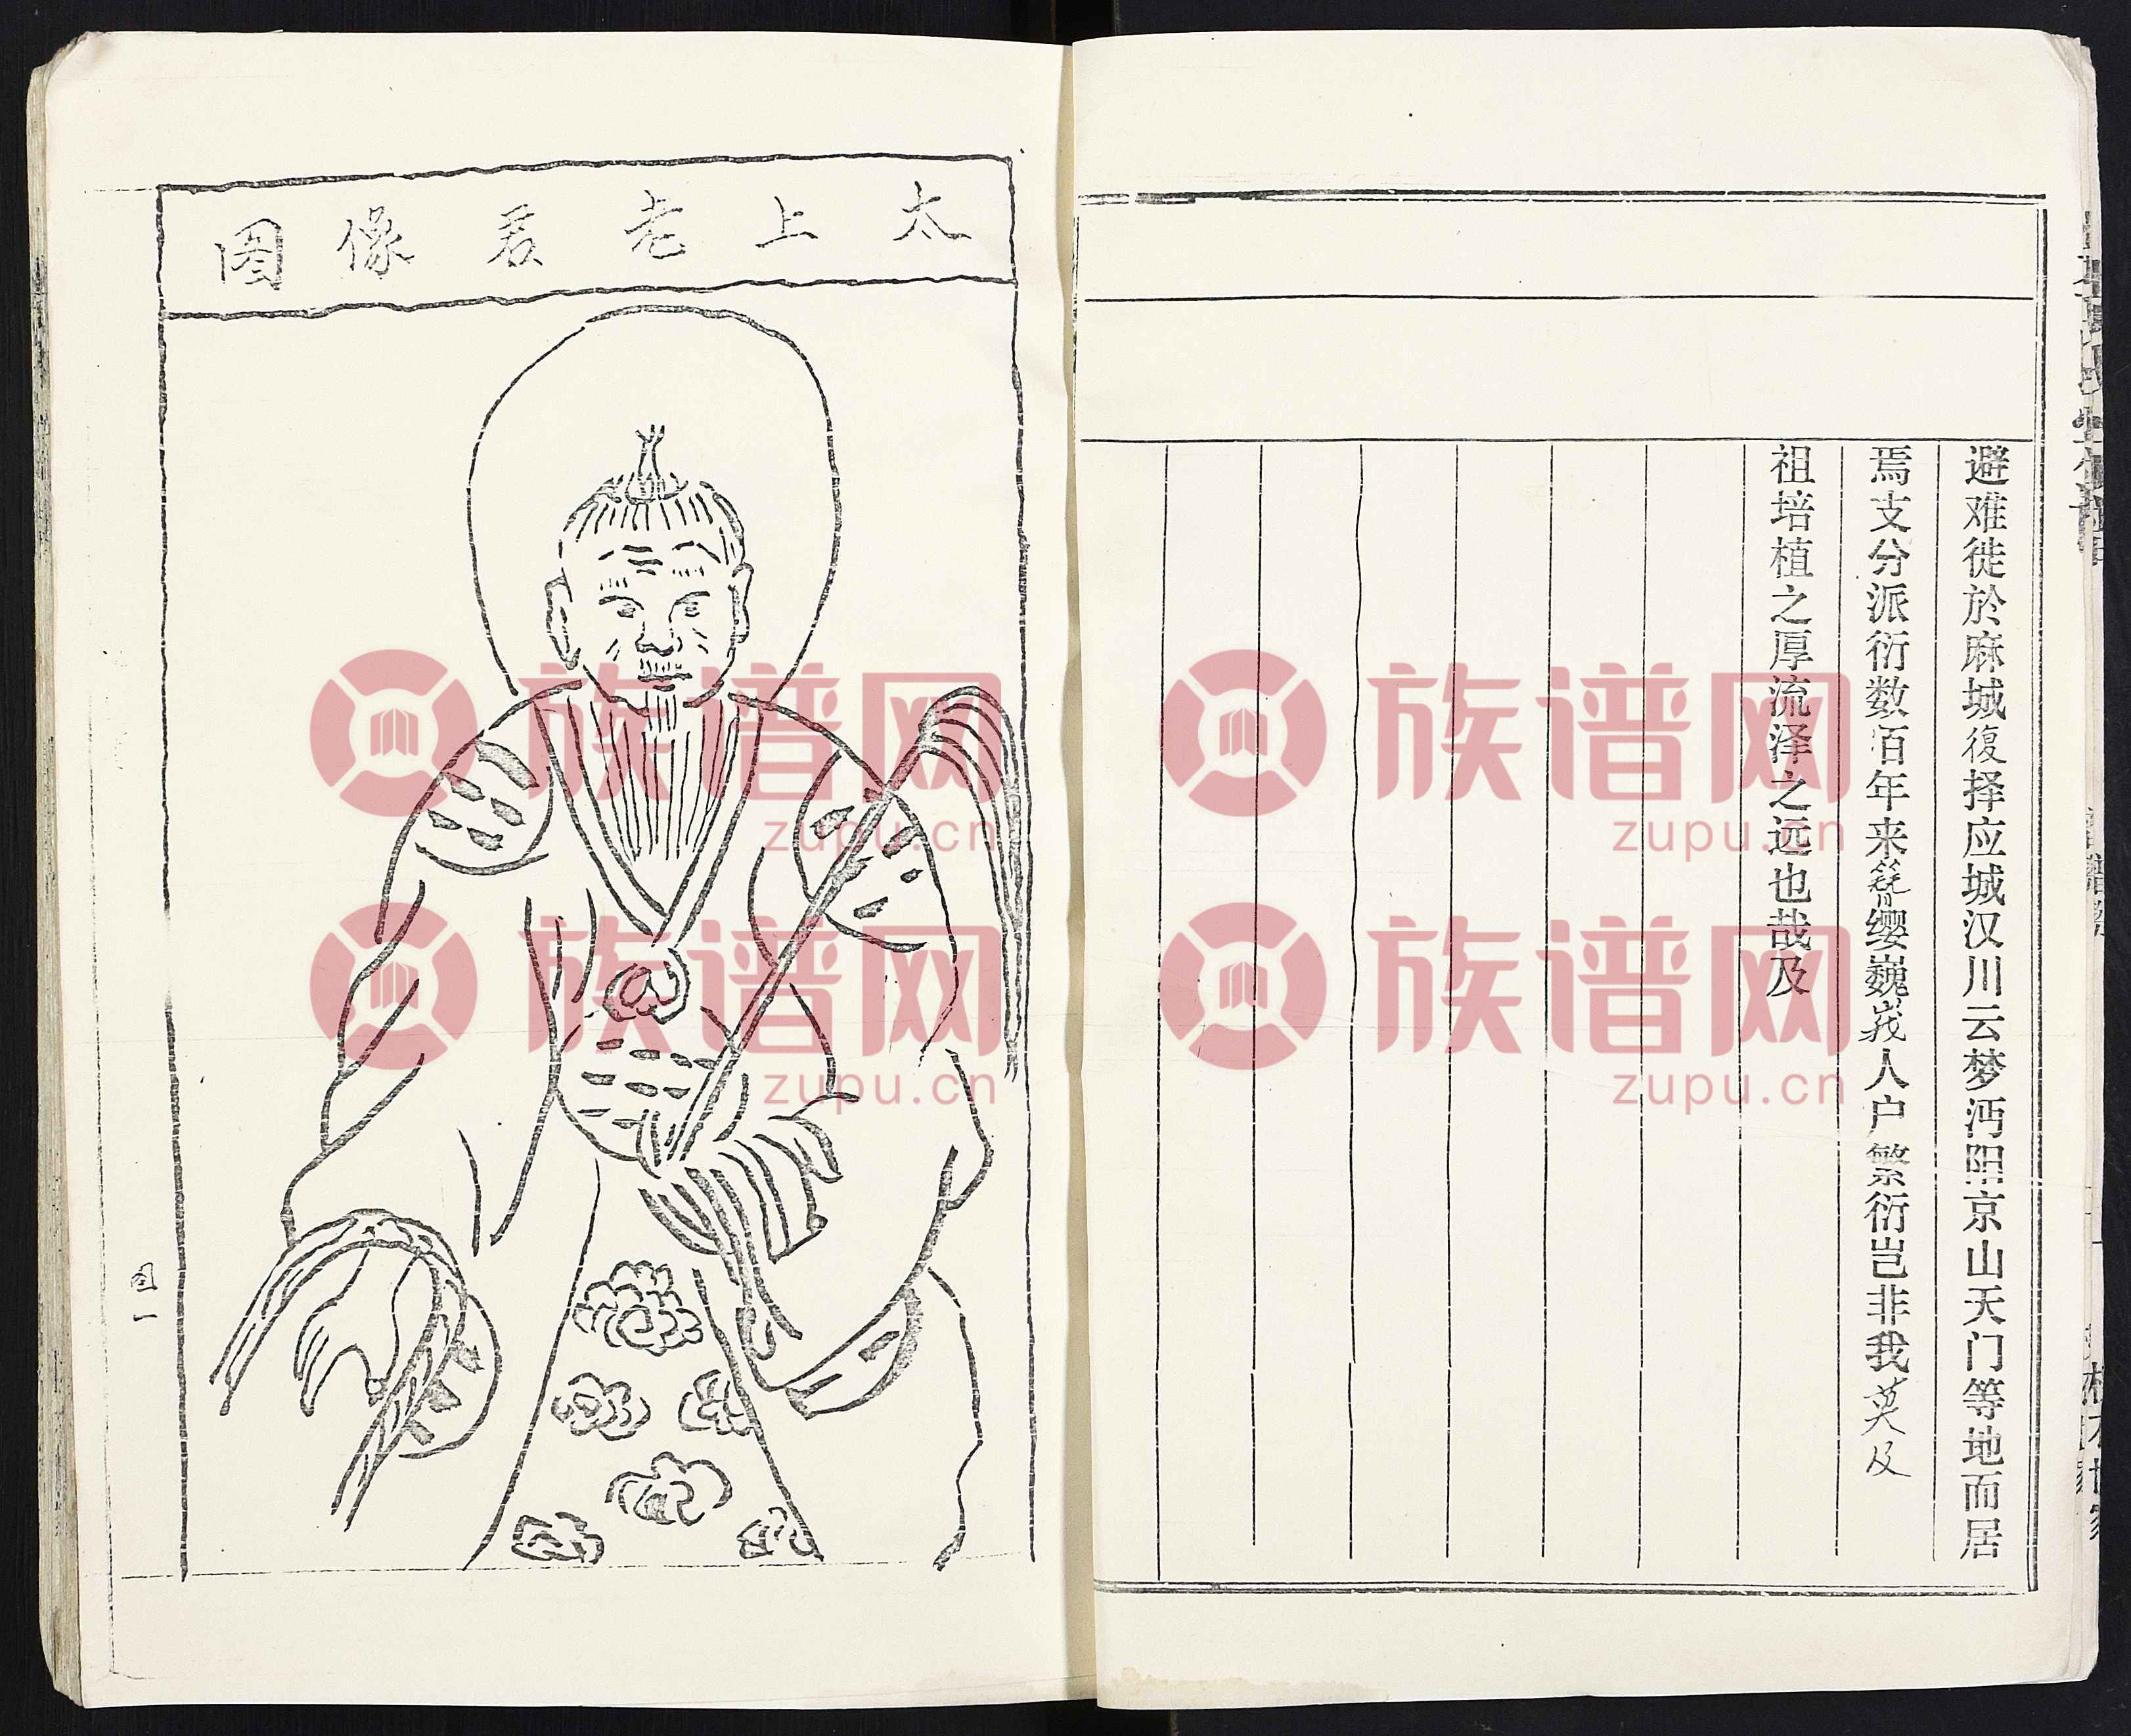 避难徙於麻城復择应城汉川云梦沔阳京山天门等地而居
焉支分派衍数百年来簪缨巍峩人户繁衍岂非我莫及
祖培植之厚流泽之远也哉及
太上老君像图
图一
族谱网
zupu.cn
族谱网
zupu.cn
族谱网
zupu.cn
族谱网
zupu.cn